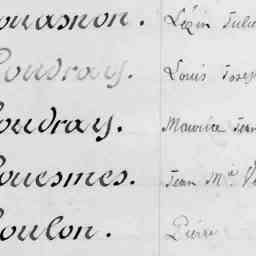 ouasnon. Lézin Julie
Coudray. Louis Josep
oudray. Maurice Jean
ouesmes. Jean M.ie V
oulon. Pierre